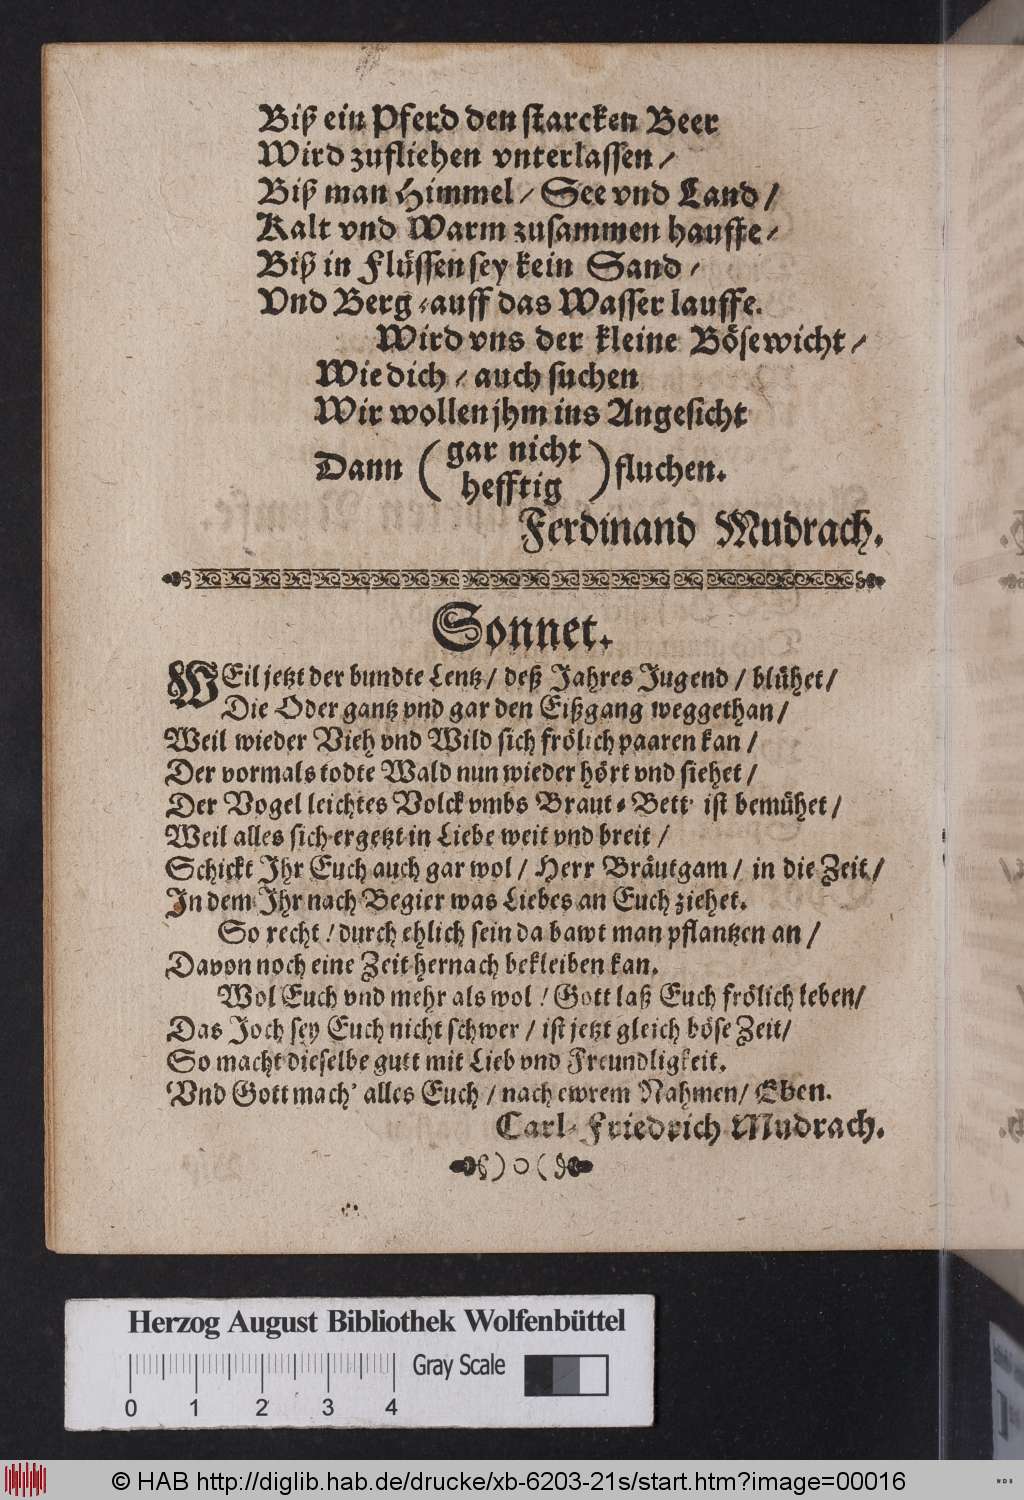 Biß ein Pferd den starcken Beer
Wird zufliehen vnterlassen /
Biß man Himmel / See vnd Land /
Kalt vnd Warm zusammen hauffe /
Biß in Flüssen sey kein Sand /
Vnd Berg-auff das Wasser lauffe.
Wird vns der kleine Bösewicht /
Wie dich / auch suchen
Wir wollen jhm ins Angesicht
Dann ( gar nicht
hefftig ) fluchen.
Ferdinand Mudrach.
Sonnet.
WEil jetzt der bundte Lentz / deß Jahres Jugend / blühet /
Die Oder gantz vnd gar den Eißgang weggethan /
Weil wieder Vieh vnd Wild sich frölich paaren kan /
Der vormals todte Wald nun wieder hört vnd siehet /
Der Vogel leichtes Volck vmbs Braut-Bett ist bemühet /
Weil alles sich ergetzt in Liebe weit vnd breit /
Schickt Ihr Euch auch gar wol / Herr Bräutgam / in die Zeit /
In dem Ihr nach Begier was Liebes an Euch ziehet.
So recht ! durch ehlich sein da bawt man pflantzen an /
Davon noch eine Zeit hernach bekleiben kan.
Wol Euch vnd mehr als wol ! Gott laß Euch frölich leben /
Das Joch sey Euch nicht schwer / ist jetzt gleich böse Zeit /
So macht dieselbe gutt mit Lieb vnd Freundligkeit.
Vnd Gott mach' alles Euch / nach ewrem Nahmen / Eben.
Carl-Friedrich Mudrach.
Herzog August Bibliothek Wolfenbüttel
Gray Scale
0 1 2 3 4
© HAB http://diglib.hab.de/drucke/xb-6203-21s/start.htm?image=00016